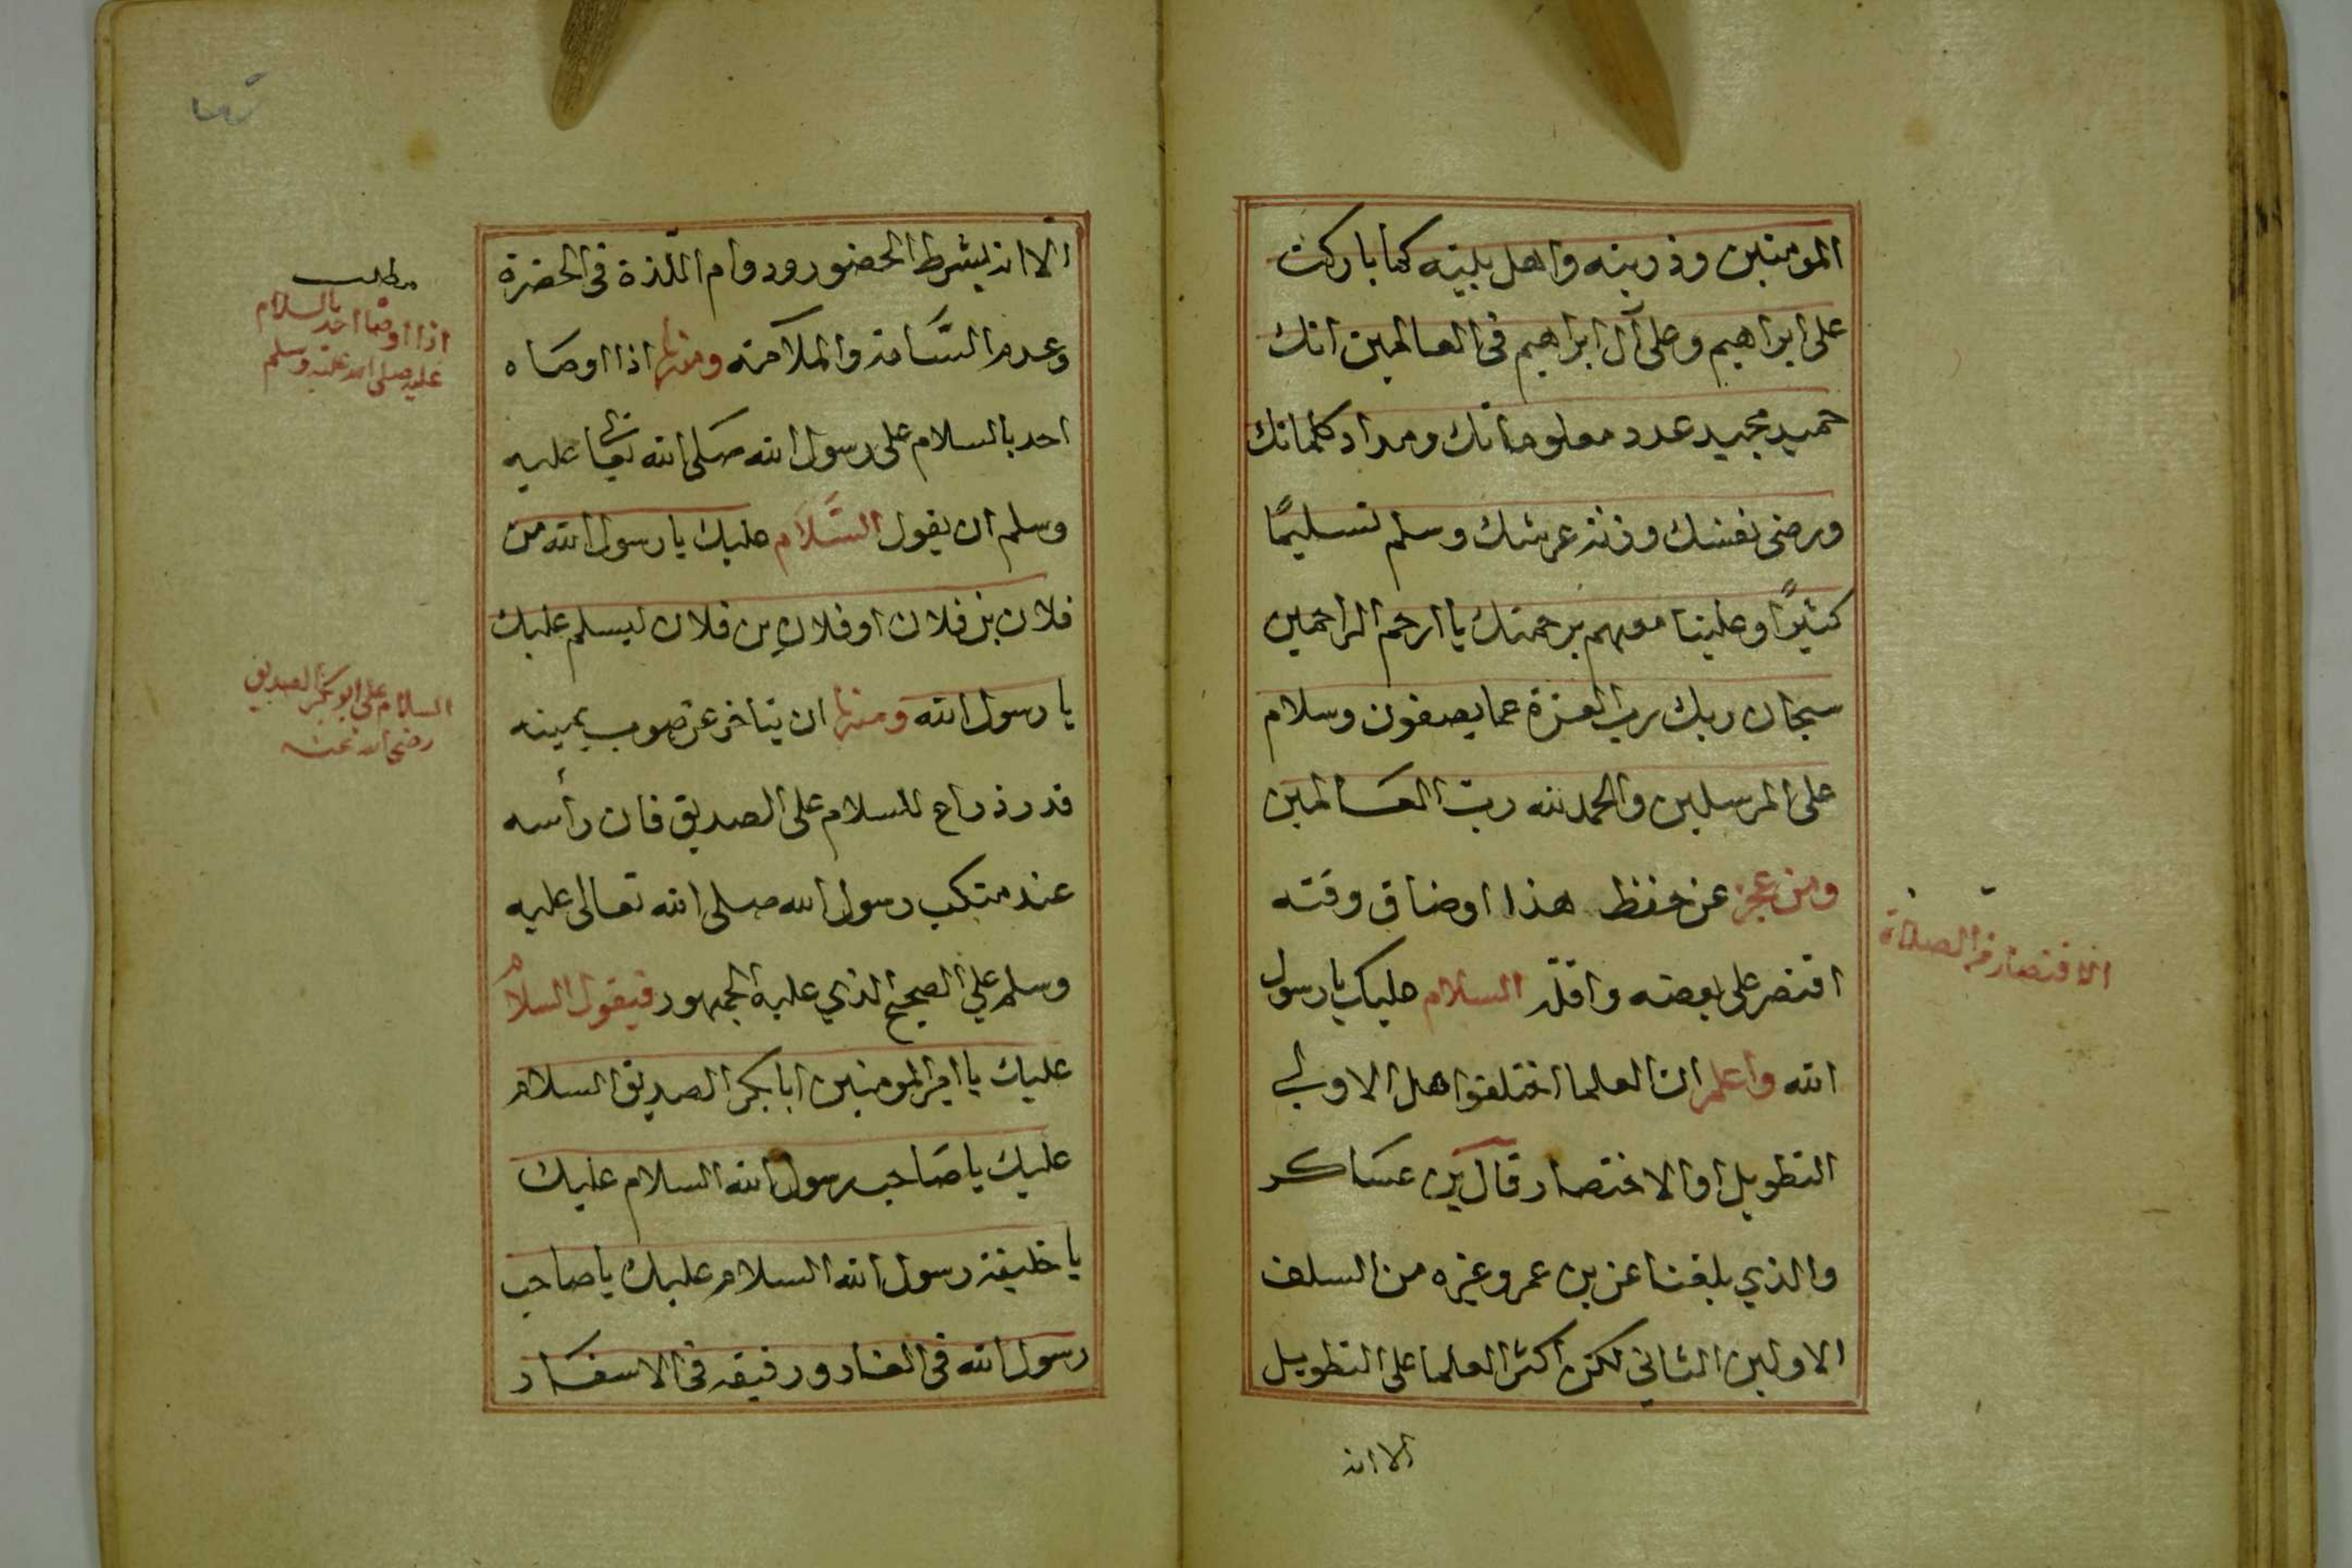 المومنين وذريته واهل بيته كما باركت
على ابراهيم وعلى آل ابراهيم في العالمين انك
حميد مجيد عدد معلوماتك ومداد كلماتك
ورضى نفسك وزنة عرشك وسلم تسليمًا
كثيرًا وعلينا معهم برحمتك يا ارحم الراحمين
سبحان ربك رب العزة عما يصفون وسلام
على المرسلين والحمد لله ربّ العَالمين
ومن عجز عن حفظ هذا او ضاق وقته
اقتصر على بعضه واقلّه السلام عليك يا رسول
الله واعلم ان العلما اختلفوا هل الاولى
التطويل او الاختصار قال بن عساكر
والذي بلغنا عن بن عمر وغيره من السلف
الاولين الثاني لكن اكثر العلما على التطويل
الا انه
الاقتصار في الصلاة
الا انه يشرط الحضور ودوام اللّذة في الحضرة
وعدم السّامة والملامة ومنها اذا اوصاه
احد بالسلام على رسول الله صلى الله تعالى عليه
وسلم ان يقول السَّلام عليك يا رسول الله من
فلان بن فلان او فلان بن فلان ليسلم عليك
يا رسول الله ومنها ان يتاخر عن صوب يمينه
قدر ذراع للسلام على الصديق فان رأسه
عند منكب رسول الله صلى الله تعالى عليه
وسلم على الصحيح الذي عليه الجمهور فيقول السلام
عليك يا امير المومنين ابا بكر الصديق السلام
عليك يا صَاحب رسول الله السلام عليك
يا خليفة رسول الله السلام عليك يا صاحب
رسول الله في الغار ورفيقه في الاسفار
مطلب
اذا اوصا احد بالسلام
عليه صلى الله عليه وسلم
السلام على ابو بكر الصديق
رضي الله عنه